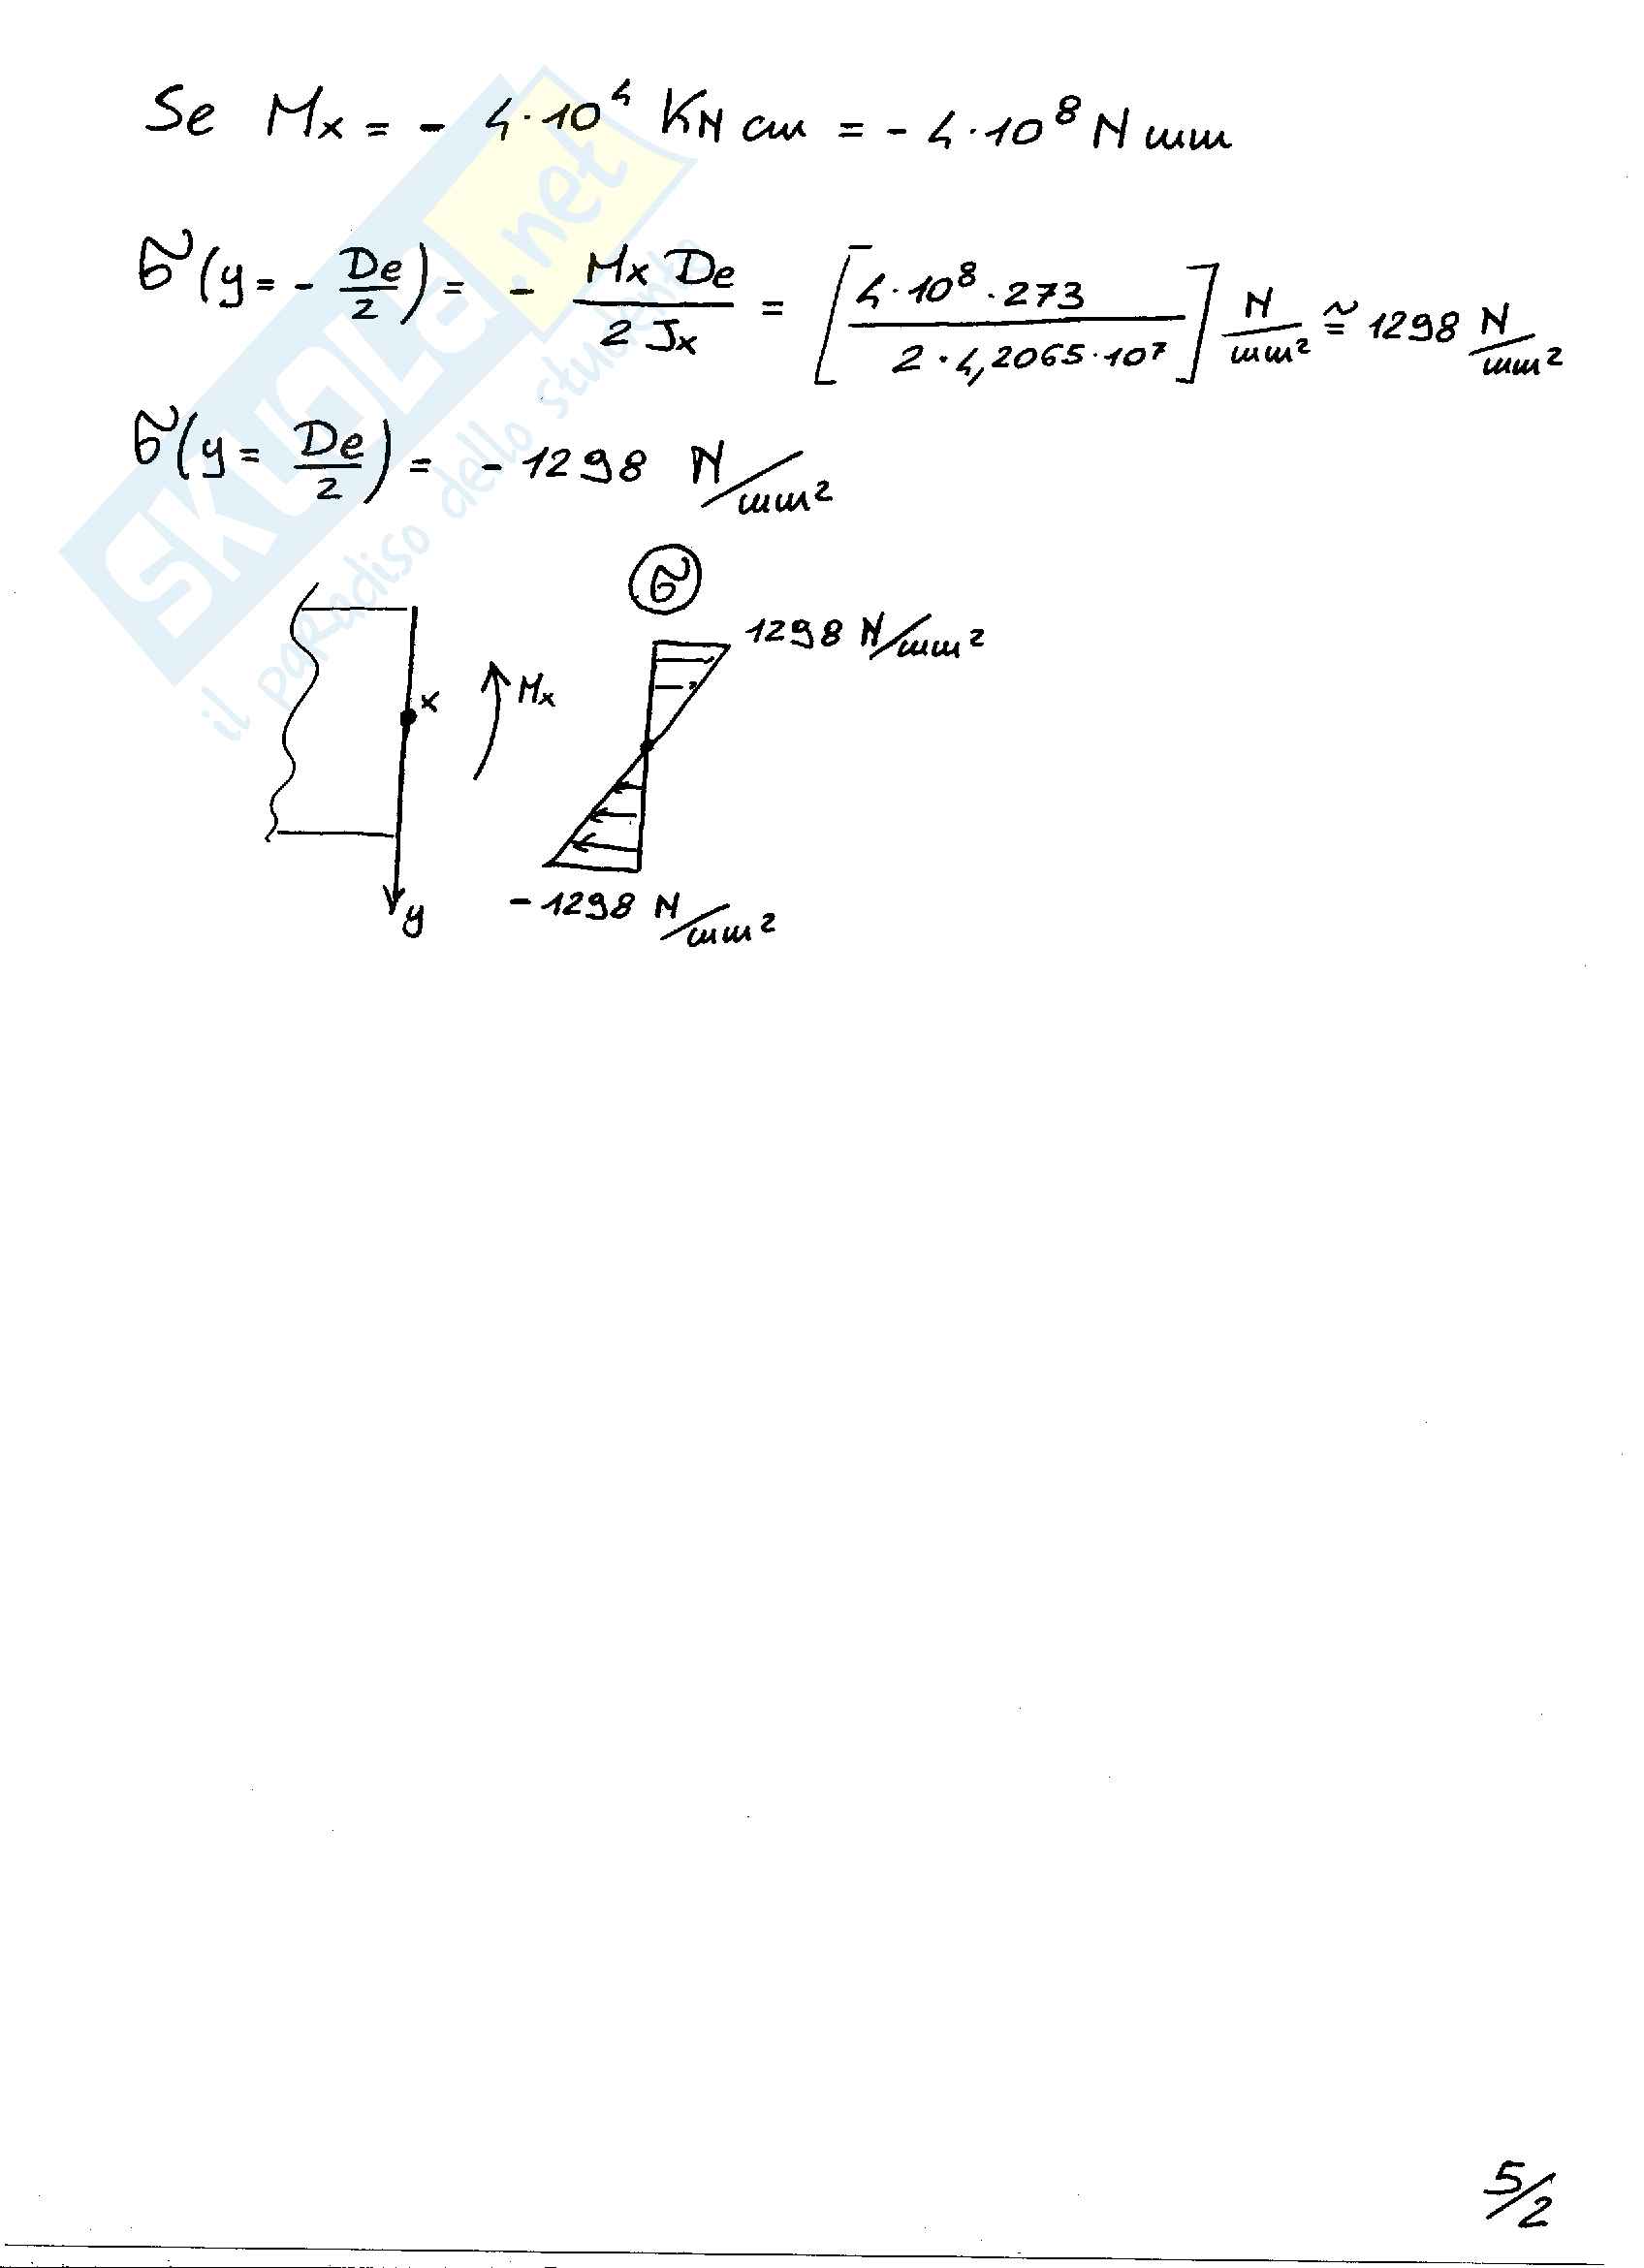 Se Mx = - 4·10⁴ KN cm = - 4·10⁸ N mm
σ(y = - De/2) = - Mx De / 2 Jx = [4·10⁸·273 / 2·4,2065·10⁷] N/mm² ≅ 1298 N/mm²
σ(y = De/2) = - 1298 N/mm²
σ
1298 N/mm²
x
Mx
y
- 1298 N/mm²
5/2
SKUOLA.net
il paradiso dello studente